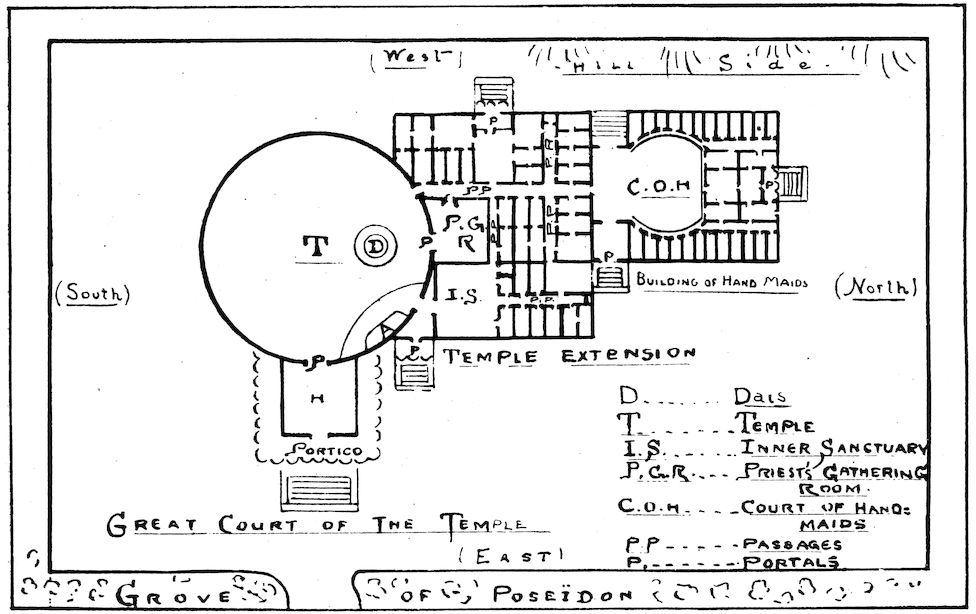 (West)
Hill Side.
P
P.P
P.P
C.O.H
P
P.P
P.G.
R
P.P
P.P
T
D
P
P
(South)
I.S.
P.P.
Building of Hand Maids
(North)
A
P
P
Temple Extension
H
Portico
D....... Dais
T....... Temple
I.S..... Inner Sanctuary
P.G.R.... Priest's Gathering
Room.
C.O.H.... Court of Hand=
Maids
P.P...... Passages
P....... Portals
Great Court of the Temple
(East)
Grove of Poseïdon